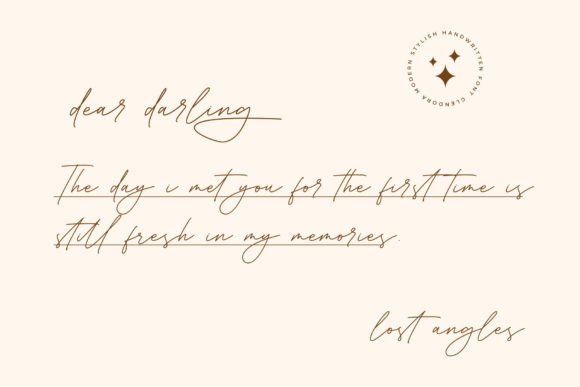 MODERN STYLISH HANDWRITTEN FONT GLENDORA
dear darling
The day i met you for the first time is
still fresh in my memories.
lost angles